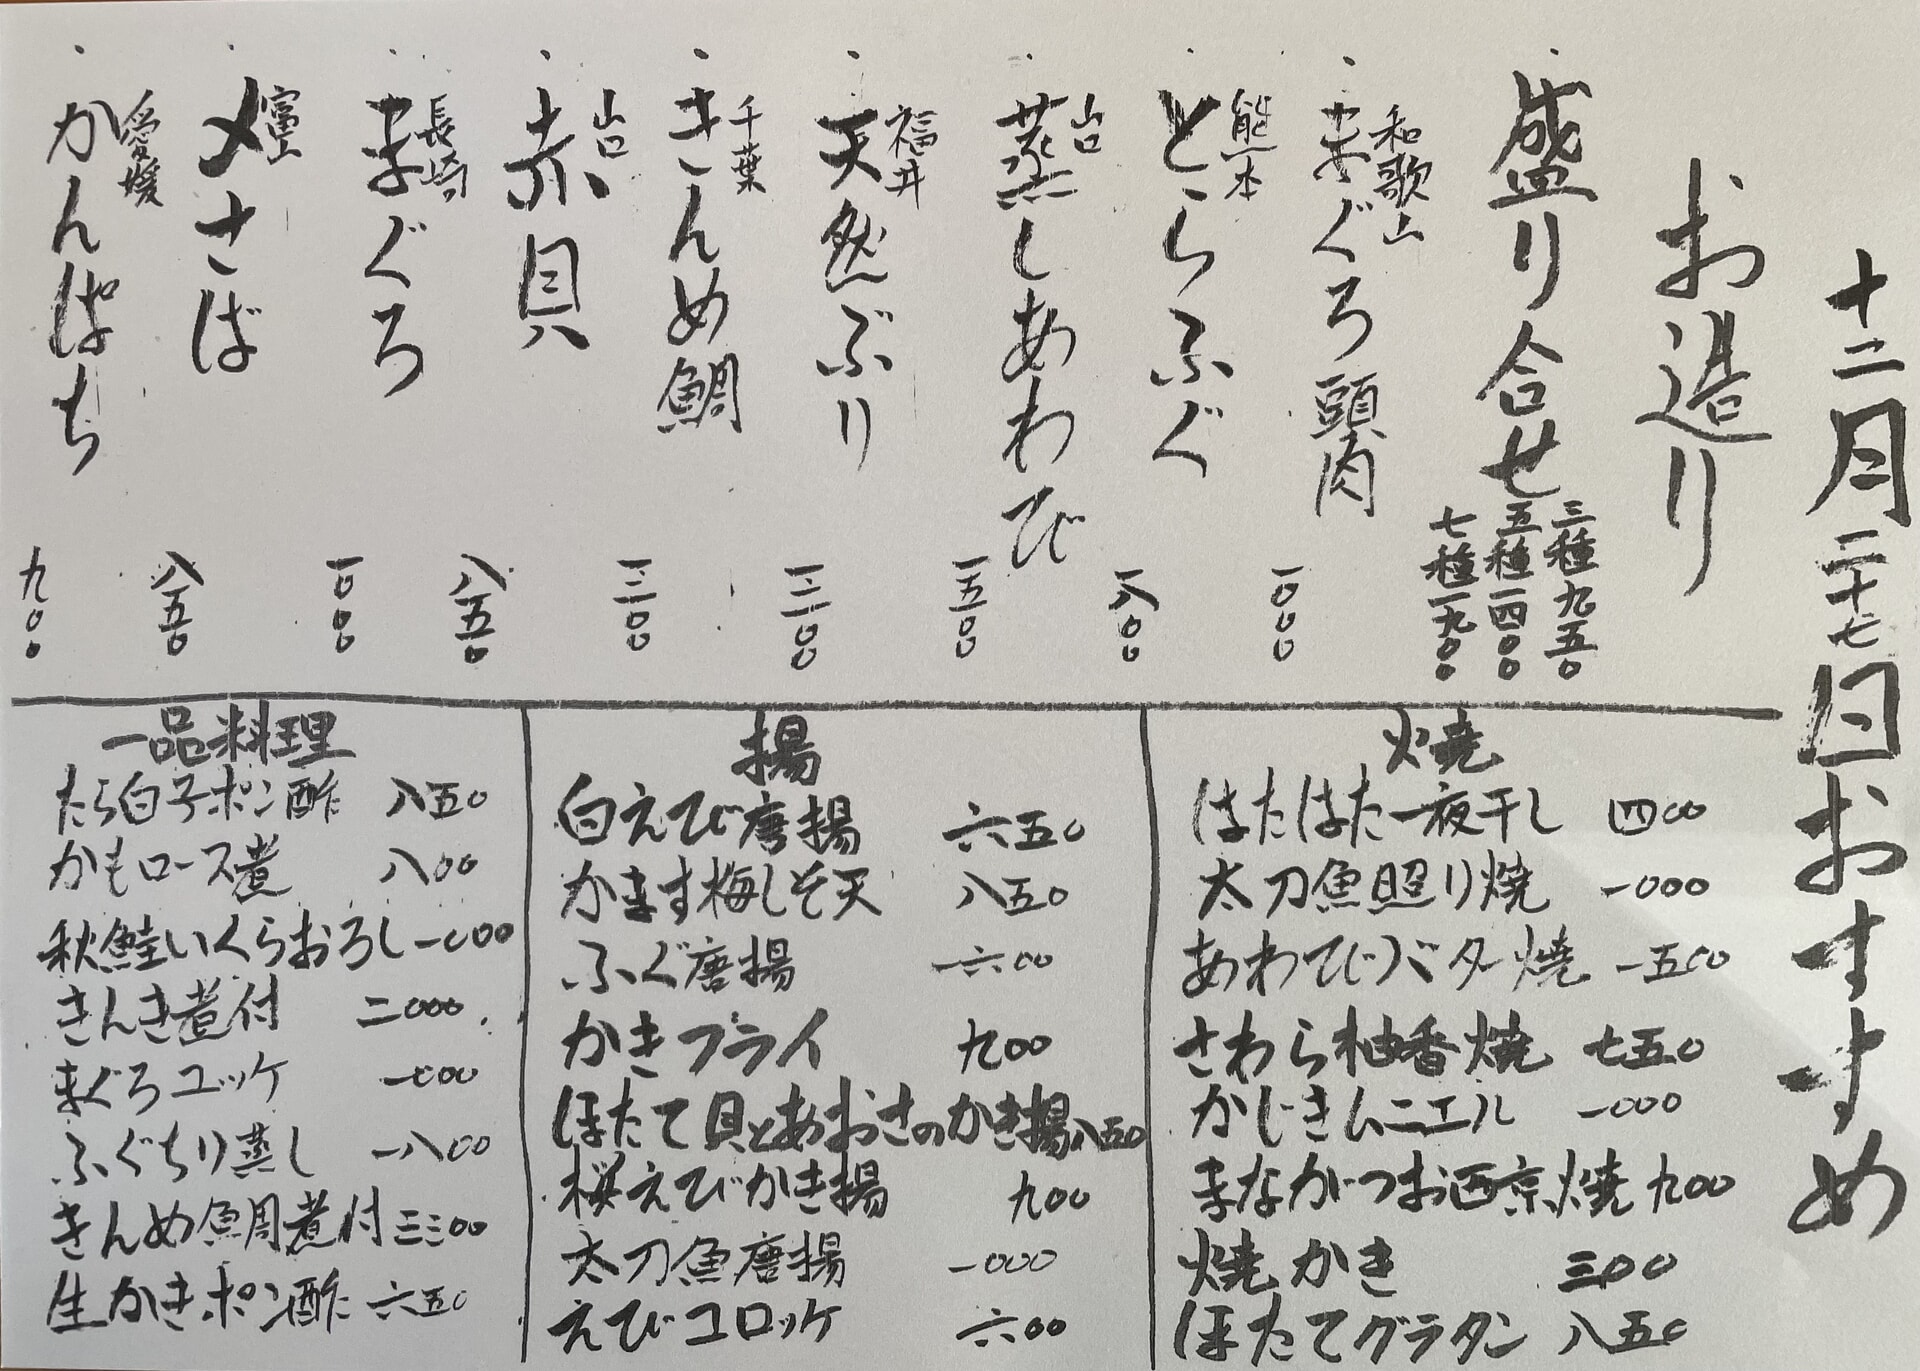 十二月二十七日おすすめ
お造り
盛り合せ 三種九五〇
五種一四〇〇
七種一九〇〇
和歌山 まぐろ頭肉 一〇〇〇
熊本 とらふぐ 一八〇〇
山口 蒸しあわび 一五〇〇
福井 天然ぶり 一二〇〇
千葉 きんめ鯛 一二〇〇
山口 赤貝 八五〇
長崎 まぐろ 一〇〇〇
富山 〆さば 八五〇
愛媛 かんぱち 九〇〇
焼
はたはた一夜干し 四〇〇
太刀魚照り焼 一〇〇〇
あわびバター焼 一五〇〇
さわら柚香焼 七五〇
かじきムニエル 一〇〇〇
まながつお西京焼 九〇〇
焼かき 三〇〇
ほたてグラタン 八五〇
揚
白えび唐揚 六五〇
かます梅しそ天 八五〇
ふぐ唐揚 一六〇〇
かきフライ 九〇〇
ほたて貝とあおさのかき揚 八五〇
桜えびかき揚 九〇〇
太刀魚唐揚 一〇〇〇
えびコロッケ 六〇〇
一品料理
たら白子ポン酢 八五〇
かもロース煮 八〇〇
秋鮭いくらおろし 一〇〇〇
きんき煮付 二〇〇〇
まぐろユッケ 一〇〇〇
ふぐちり蒸し 一八〇〇
きんめ鯛煮付 三三〇〇
生かきポン酢 六五〇